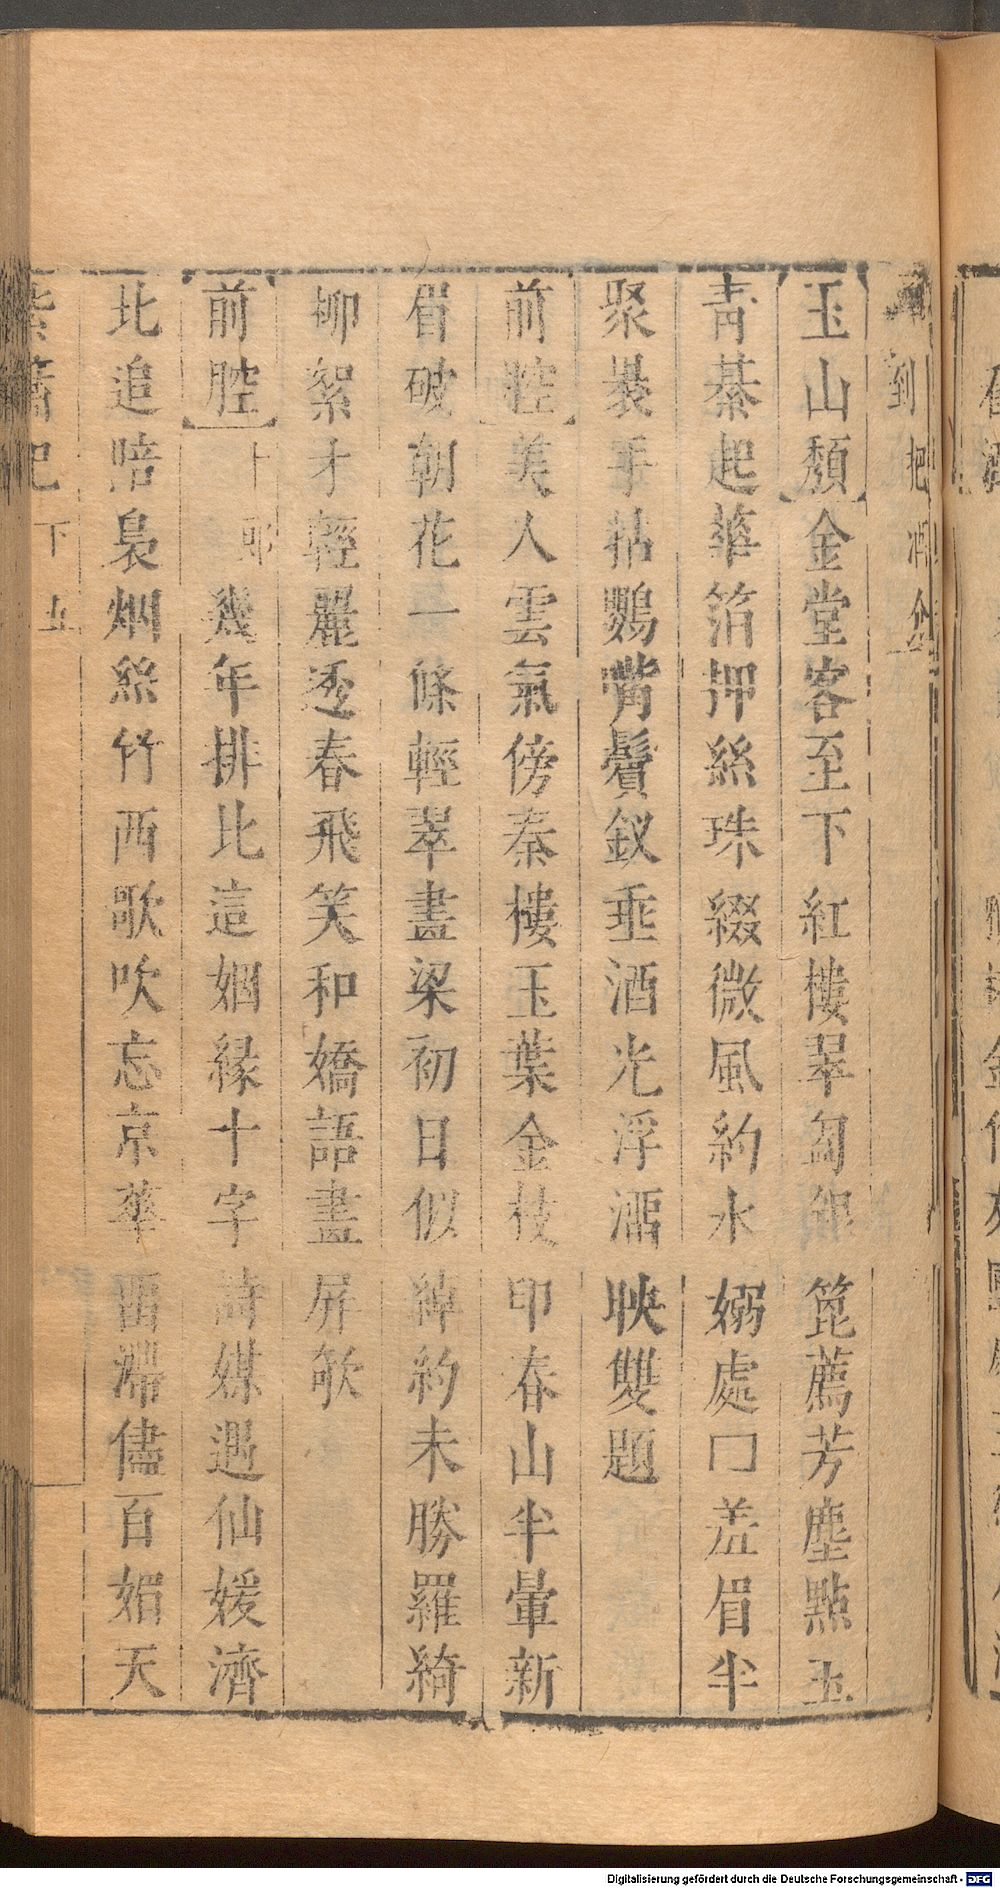 到把酒介
【玉山頹】金堂客至下紅樓翠匐銀箆薦芳塵點玉
靑綦起華箔押絲珠綴微風約水嫋處冂羞眉半
聚裊手拈鸚觜鬢釵垂酒光浮洒映雙題
【前腔】美人雲氣傍秦樓玉葉金枝印春山半暈新
眉破朝花一條輕翠畫梁初日似綽約未勝羅綺
柳絮才輕麗透春飛笑和嬌語畫屏欹
【前腔】十郎幾年排比這姻緣十字詩媒遇仙媛濟
北追陪裊烟絲竹西歌吹忘京華留滯儘百媚天
紫簫記 下 五
Digitalisierung gefördert durch die Deutsche Forschungsgemeinschaft - DFG